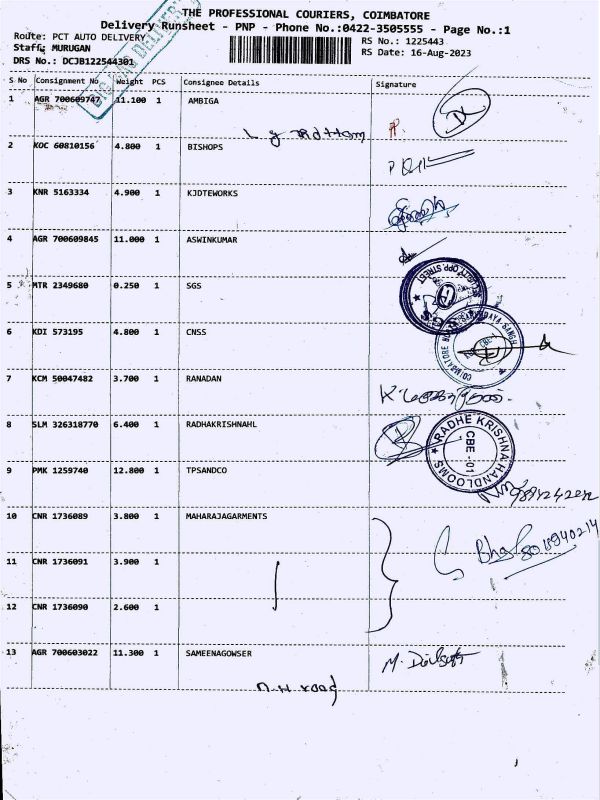 THE PROFESSIONAL COURIERS, COIMBATORE
Delivery Runsheet - PNP - Phone No.:0422-3505555 - Page No.:1
Route: PCT AUTO DELIVERY RS No.: 1225443
Staff: MURUGAN RS Date: 16-Aug-2023
DRS No.: DCJB122544301
S No Consignment No Weight PCS Consignee Details Signature
1 AGR 700609747 11.100 1 AMBIGA
2 KOC 60810156 4.800 1 BISHOPS
3 KNR 5163334 4.900 1 KJDTEWORKS
4 AGR 700609845 11.000 1 ASWINKUMAR
5 MTR 2349680 0.250 1 SGS
6 KDI 573195 4.800 1 CNSS
7 KCM 50047482 3.700 1 RANADAN
8 SLM 326318770 6.400 1 RADHAKRISHNAHL
RADHE KRISHNA HANDLOOMS
CBE - 01
9 PMK 1259740 12.800 1 TPSANDCO
10 CNR 1736089 3.800 1 MAHARAJAGARMENTS
11 CNR 1736091 3.900 1
12 CNR 1736090 2.600 1
13 AGR 700603022 11.300 1 SAMEENAGOWSER